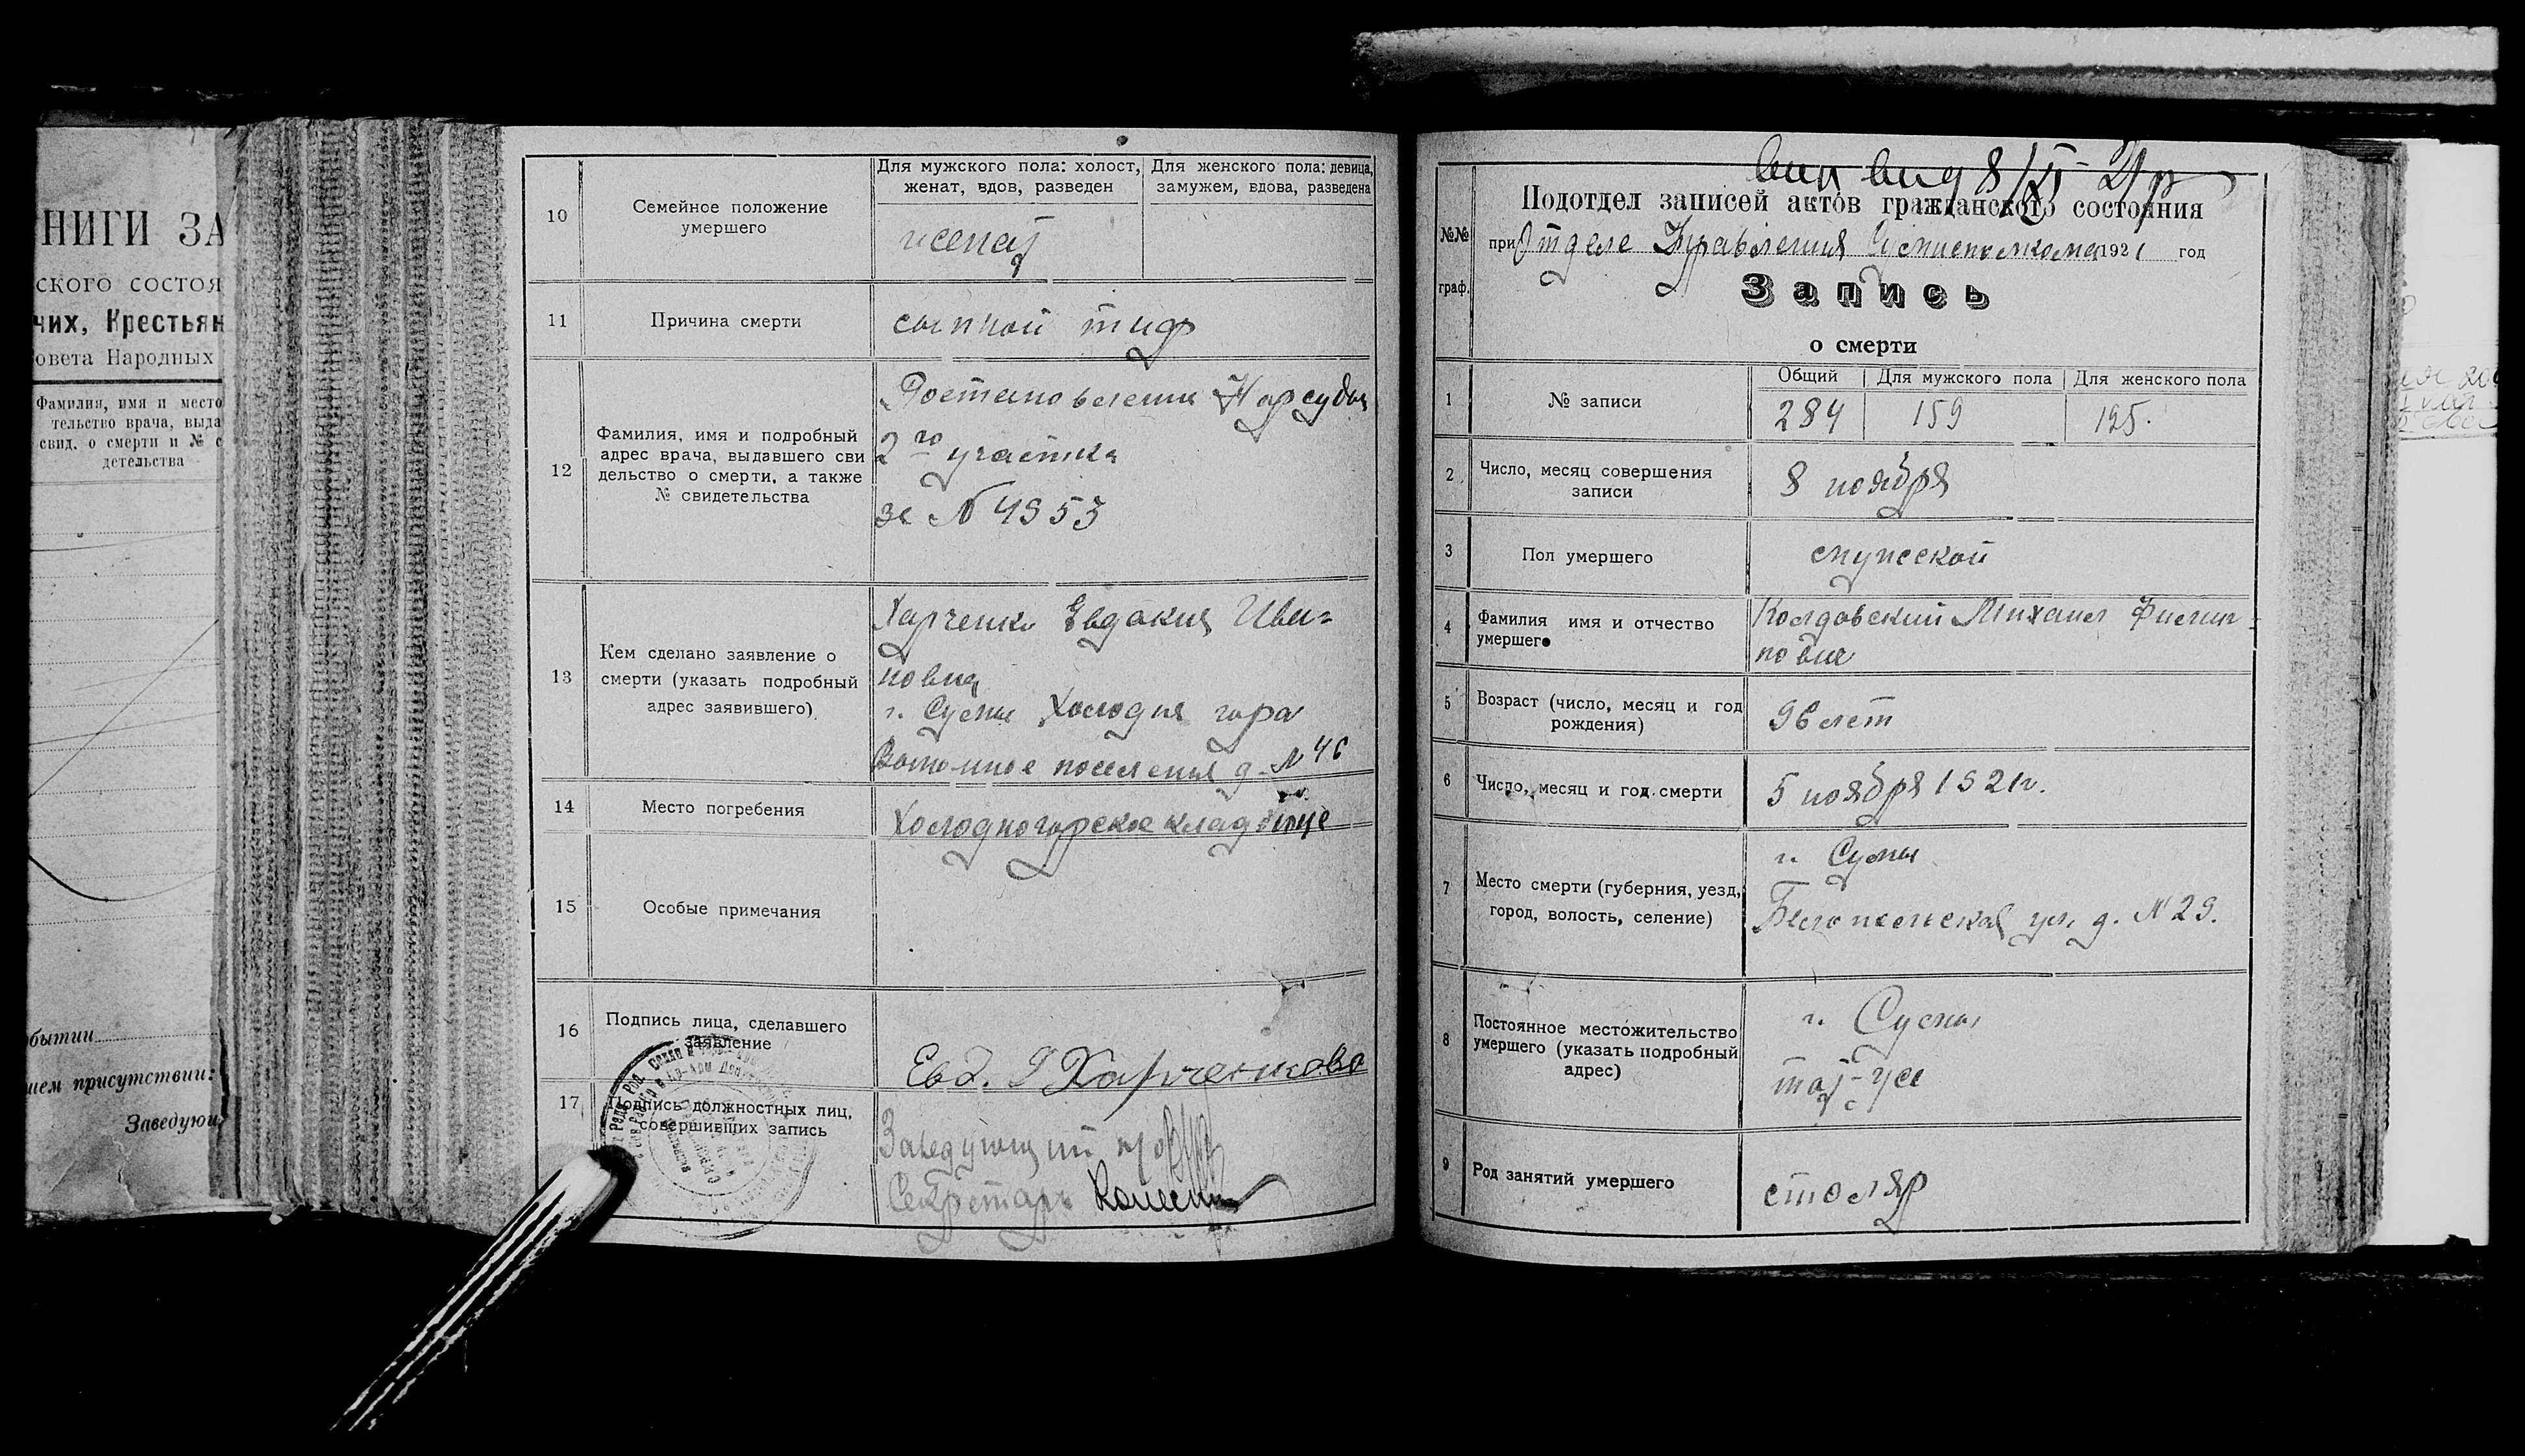 НИГИ ЗА
ского состоя
чих, Крестьян
овета Народных
Фамилия, имя и место
тельство врача, выда
свид. о смерти и № с
детельства
бытии
ием присутствии:
Заведующ
10
Семейное положение
умершего
Для мужского пола: холост,
женат, вдов, разведен
Для женского пола: девица,
замужем, вдова, разведена
женат
11
Причина смерти
сыпной тиф
12
Фамилия, имя и подробный
адрес врача, выдавшего сви
дельство о смерти, а также
№ свидетельства
Постановление Нарсуда
2го участка
за № 4953
13
Кем сделано заявление о
смерти (указать подробный
адрес заявившего)
Харченко Евдокия Ива=
новна
г. Сумы Холодная гора
поселения д. № 46
14
Место погребения
Холодногорское кладбище
15
Особые примечания
16
Подпись лица, сделавшего
заявление
Евд. Харченкова
17
Подпись должностных лиц,
совершивших запись
Заведующий
Секретарь
№№
граф.
Подотдел записей актов гражданского состояния
при Отделе Управления 1921 год
Запись
о смерти
1
№ записи
Общий
Для мужского пола
Для женского пола
284
159
125.
2
Число, месяц совершения
записи
8 ноября
3
Пол умершего
мужской
4
Фамилия имя и отчество
умершего
Колдовский Михаил Филип=
пович
5
Возраст (число, месяц и год
рождения)
36 лет
6
Число, месяц и год смерти
5 ноября 1921г.
7
Место смерти (губерния, уезд,
город, волость, селение)
г. Сумы
Белопольская ул. д. № 29.
8
Постоянное местожительство
умершего (указать подробный
адрес)
г. Сумы
там-же
9
Род занятий умершего
столяр